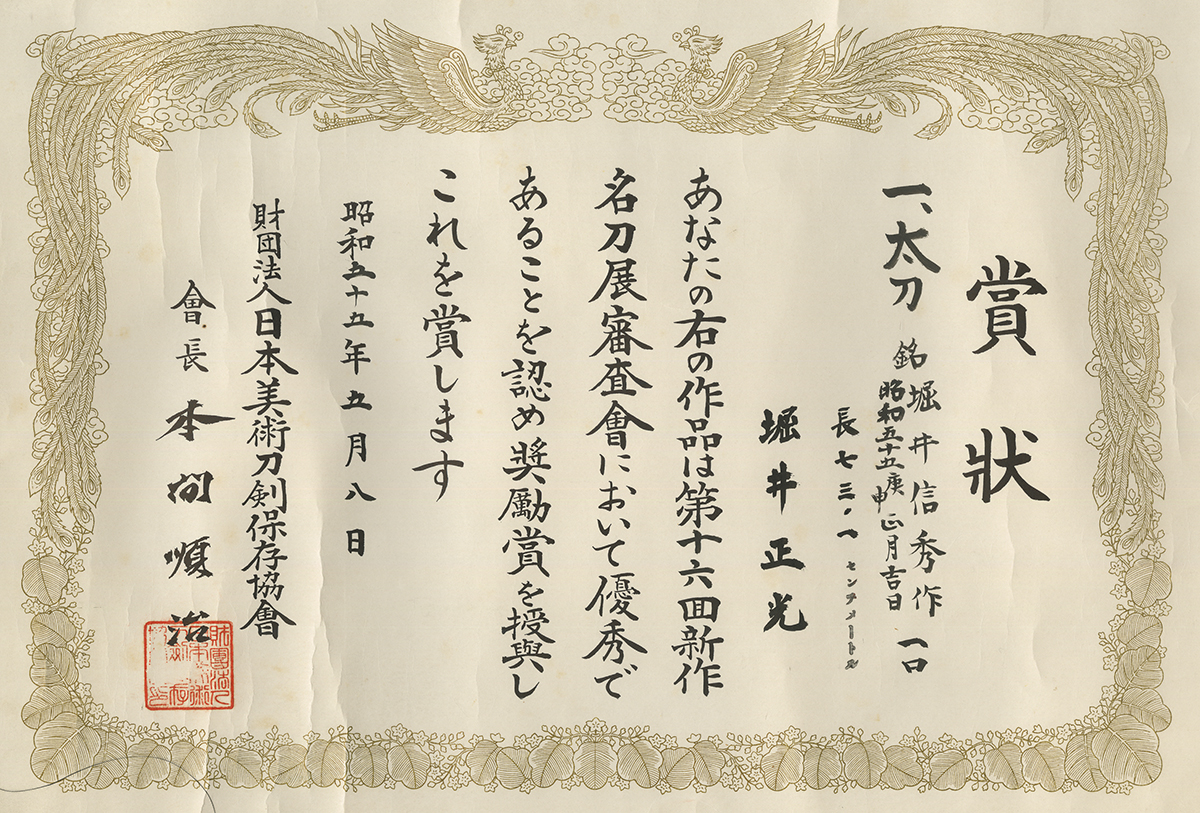 賞状
一、太刀 銘 堀井信秀作 一口
昭和五十五庚申正月吉日
長七三・一センチメートル
堀井正光
あなたの右の作品は第十六回新作
名刀展審査會において優秀で
あることを認め奨励賞を授與し
これを賞します
昭和五十五年五月八日
財団法人日本美術刀剣保存協會
會長 本間順治